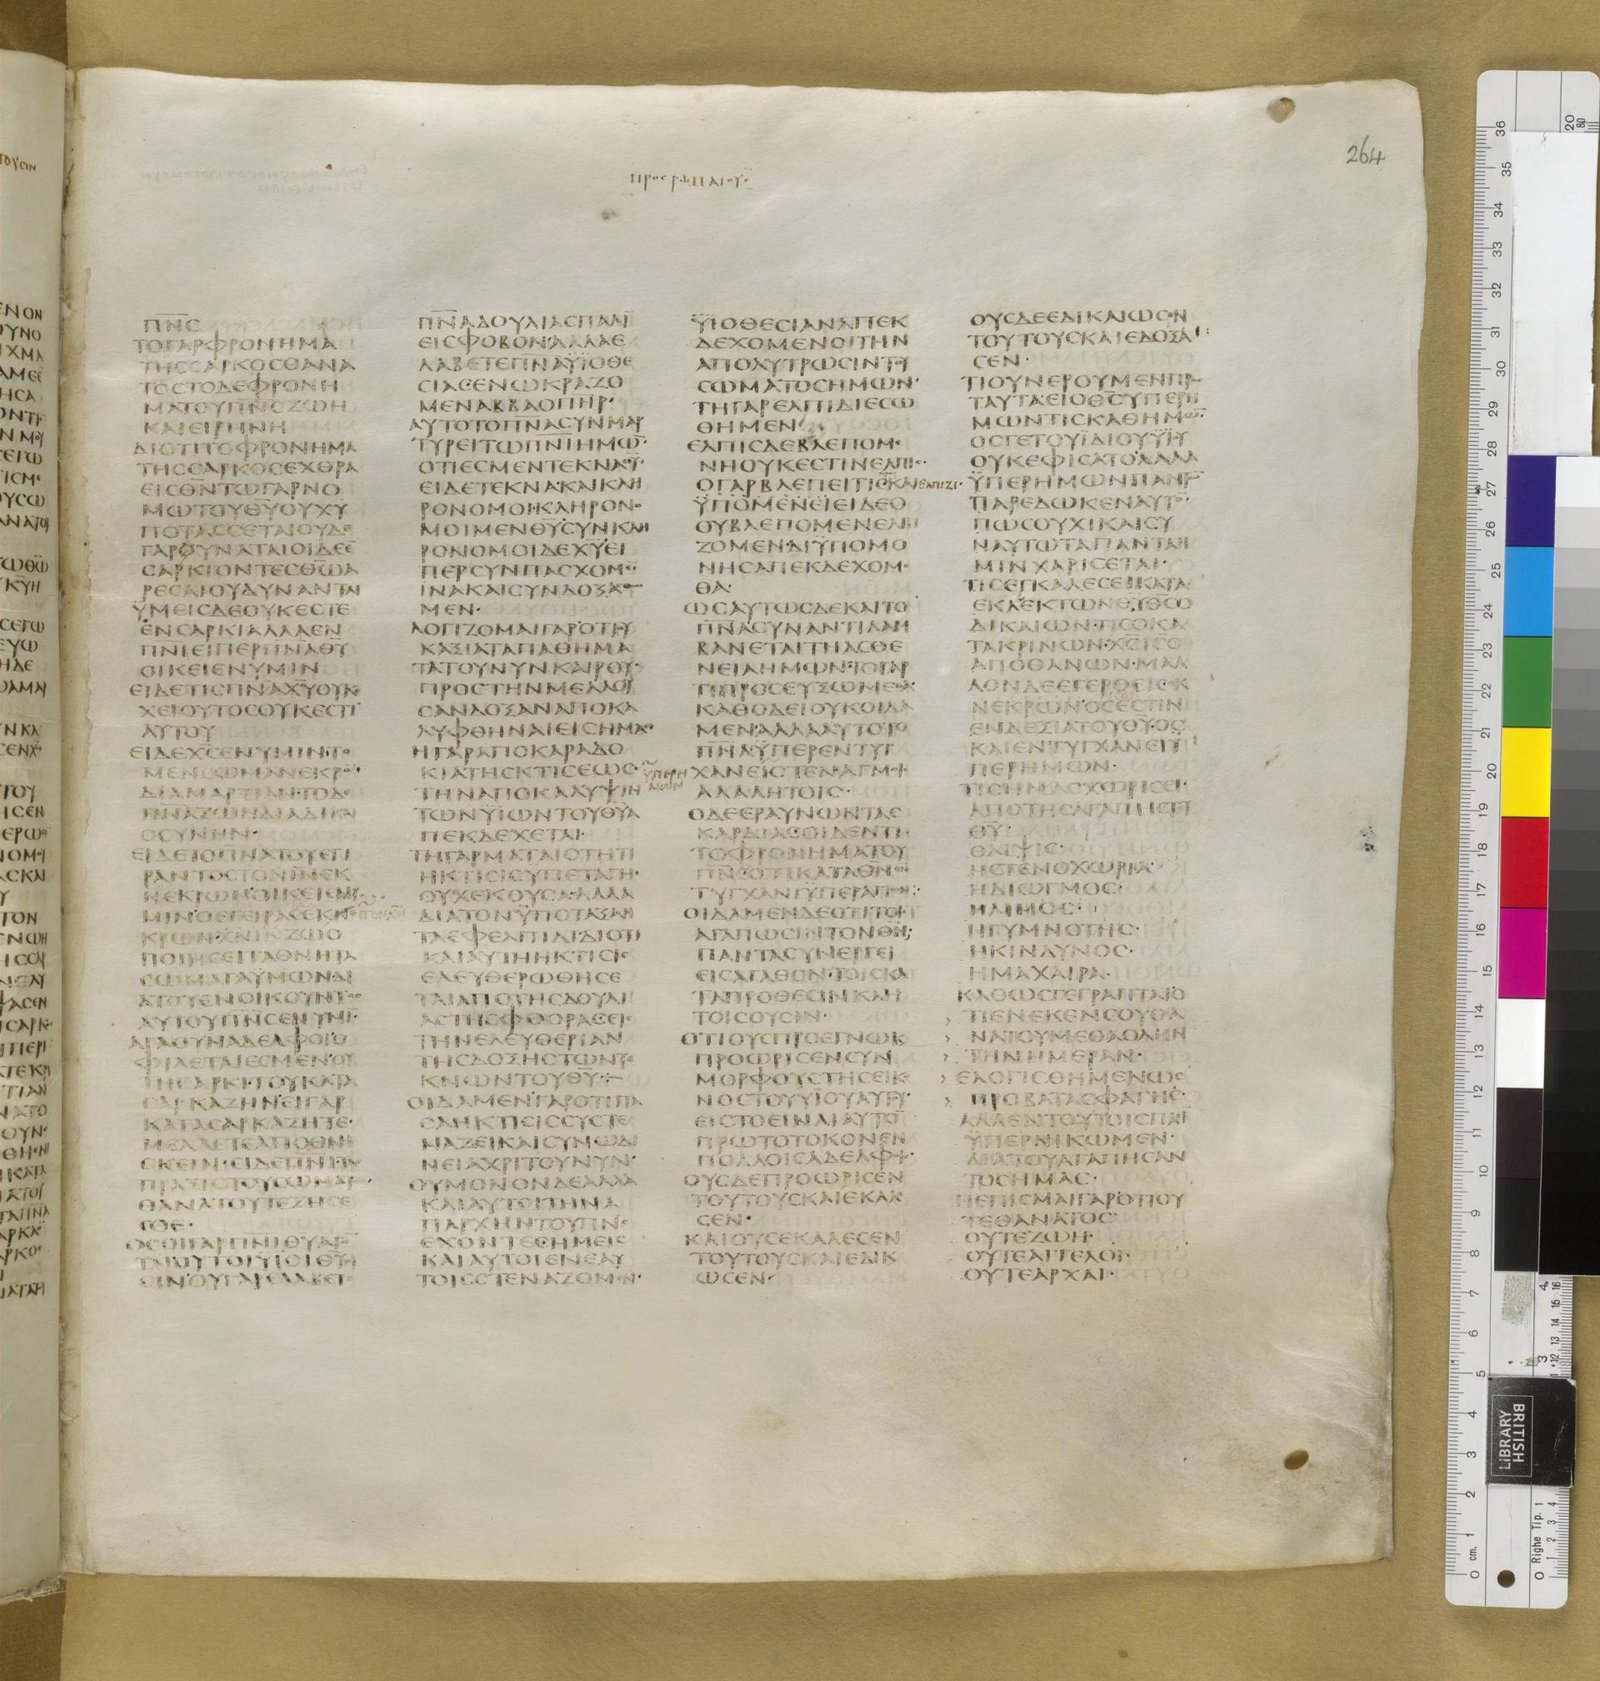 264
ΠΡΟΣ ΡΩΜΑΙΟΥΣ
ΠΝϹ
ΤΟΓΑΡΦΡΟΝΗΜΑ
ΤΗϹϹΑΡΚΟϹΘΑΝΑ
ΤΟϹΤΟΔΕΦΡΟΝΗ
ΜΑΤΟΥΠΝϹΖΩΗ
ΚΑΙΕΙΡΗΝΗ
ΔΙΟΤΙΤΟΦΡΟΝΗΜΑ
ΤΗϹϹΑΡΚΟϹΕΧΘΡΑ
ΕΙϹΘΝΤΩΓΑΡΝΟ
ΜΩΤΟΥΘΥΟΥΧΥ
ΠΟΤΑϹϹΕΤΑΙΟΥΔΕ
ΓΑΡΔΥΝΑΤΑΙΟΙΔΕΕ
ϹΑΡΚΙΟΝΤΕϹΘΩΑ
ΡΕϹΑΙΟΥΔΥΝΑΝΤΑΙ
ΫΜΕΙϹΔΕΟΥΚΕϹΤΕ
ΕΝϹΑΡΚΙΑΛΛΑΕΝ
ΠΝΙΕΙΠΕΡΠΝΑΘΥ
ΟΙΚΕΙΕΝΥΜΙΝ
ΕΙΔΕΤΙϹΠΝΑΧΥΟΥΚ
ΧΕΙΟΥΤΟϹΟΥΚΕϹΤΙ
ΑΥΤΟΥ
ΕΙΔΕΧϹΕΝΥΜΙΝΤΟ
ΜΕΝϹΩΜΑΝΕΚΡΟ
ΔΙΑΜΑΡΤΙΑΝ·ΤΟΔΕ
ΠΝΑΖΩΗΔΙΑΔΙΚΑΙ
ΟϹΥΝΗΝ·
ΕΙΔΕΤΟΠΝΑΤΟΥΕΓΙ
ΡΑΝΤΟϹΤΟΝΙΝΕΚ
ΝΕΚΡΩΝΟΙΚΕΙΕΝΥ
ΜΙΝΟΕΓΕΙΡΑϹΕΚΝΕ
ΚΡΩΝΧΝΙΝΖΩΟ
ΠΟΙΗϹΕΙΤΑΘΝΗΤΑ
ϹΩΜΑΤΑΥΜΩΝΔΙ
ΑΤΟΥΕΝΟΙΚΟΥΝΤΟϹ
ΑΥΤΟΥΠΝϹΕΝΥΜΙ
ΑΡΑΟΥΝΑΔΕΛΦΟΙΟ
ΦΙΛΕΤΑΙΕϹΜΕΝΟΥ
ΤΗϹΑΡΚΙΤΟΥΚΑΤΑ
ϹΑΡΚΑΖΗΝΕΙΓΑΡ
ΚΑΤΑϹΑΡΚΑΖΗΤΕ·
ΜΕΛΛΕΤΕΑΠΟΘΝΗ
ϹΚΕΙΝ·ΕΙΔΕΠΝΙΤΑϹ
ΠΡΑΞΙϹΤΟΥϹΩΜΑΤ
ΘΑΝΑΤΟΥΤΕΖΗϹΕ
ϹΘΕ·
ΟϹΟΙΓΑΡΠΝΙΘΥΑΓ
ΤΑΙΟΥΤΟΙΥΙΟΙΘΥ
ΕΙϹΙΝΟΥΓΑΡΕΛΑΒΕΤΕ
ΠΝΑΔΟΥΛΙΑϹΠΑΛΙ
ΕΙϹΦΟΒΟΝ·ΑΛΛΑΕ
ΛΑΒΕΤΕΠΝΑΫΪΟΘΕ
ϹΙΑϹΕΝΩΚΡΑΖΟ
ΜΕΝΑΒΒΑΟΠΗΡ·
ΑΥΤΟΤΟΠΝΑϹΥΝΜΑΡ
ΤΥΡΕΙΤΩΠΝΙΗΜΩ
ΟΤΙΕϹΜΕΝΤΕΚΝΑΘΥ
ΕΙΔΕΤΕΚΝΑΚΑΙΚΛΗ
ΡΟΝΟΜΟΙΚΛΗΡΟΝΟ
ΜΟΙΜΕΝΘΥϹΥΝΚΛΗ
ΡΟΝΟΜΟΙΔΕΧΥΕΙ
ΠΕΡϹΥΝΠΑϹΧΟΜΕ
ΙΝΑΚΑΙϹΥΝΔΟΞΑϹΘΩ
ΜΕΝ·
ΛΟΓΙΖΟΜΑΙΓΑΡΟΤΙΟΥ
ΚΑΞΙΑΤΑΠΑΘΗΜΑ
ΤΑΤΟΥΝΥΝΚΑΙΡΟΥ
ΠΡΟϹΤΗΝΜΕΛΛΟΥ
ϹΑΝΔΟΞΑΝΑΠΟΚΑ
ΛΥΦΘΗΝΑΙΕΙϹΗΜΑϹ
ΗΓΑΡΑΠΟΚΑΡΑΔΟ
ΚΙΑΤΗϹΚΤΙϹΕΩϹ
ΤΗΝΑΠΟΚΑΛΥΨΙΝ
ΤΩΝΫΙΩΝΤΟΥΘΥΑ
ΠΕΚΔΕΧΕΤΑΙ·
ΤΗΓΑΡΜΑΤΑΙΟΤΗΤΙ
ΗΚΤΙϹΙϹΥΠΕΤΑΓΗ·
ΟΥΧΕΚΟΥϹΑ·ΑΛΛΑ
ΔΙΑΤΟΝΫΠΟΤΑΞΑΝ
ΤΑΕΦΕΛΠΙΔΙ·ΔΙΟΤΙ
ΚΑΙΑΥΤΗΗΚΤΙϹΙϹ
ΕΛΕΥΘΕΡΩΘΗϹΕ
ΤΑΙΑΠΟΤΗϹΔΟΥΛΙ
ΑϹΤΗϹΦΘΟΡΑϹΕΙϹ
ΤΗΝΕΛΕΥΘΕΡΙΑΝ
ΤΗϹΔΟΞΗϹΤΩΝΤΕ
ΚΝΩΝΤΟΥΘΥ·
ΟΙΔΑΜΕΝΓΑΡΟΤΙΠΑ
ϹΑΗΚΤΙϹΙϹϹΥϹΤΕ
ΝΑΖΕΙΚΑΙϹΥΝΩΔΙ
ΝΕΙΑΧΡΙΤΟΥΝΥΝ·
ΟΥΜΟΝΟΝΔΕΑΛΛΑ
ΚΑΙΑΥΤΟΙΤΗΝΑ
ΠΑΡΧΗΝΤΟΥΠΝϹ
ΕΧΟΝΤΕϹΗΜΕΙϹ
ΚΑΙΑΥΤΟΙΕΝΕΑΥ
ΤΟΙϹϹΤΕΝΑΖΟΜΕΝ
ΫΙΟΘΕϹΙΑΝΑΠΕΚ
ΔΕΧΟΜΕΝΟΙΤΗΝ
ΑΠΟΛΥΤΡΩϹΙΝΤΟΥ
ϹΩΜΑΤΟϹΗΜΩΝ·
ΤΗΓΑΡΕΛΠΙΔΙΕϹΩ
ΘΗΜΕΝ
ΕΛΠΙϹΔΕΒΛΕΠΟΜΕ
ΝΗΟΥΚΕϹΤΙΝΕΛΠΙϹ·
ΟΓΑΡΒΛΕΠΕΙΤΙϹΚΑΙΕΛΠΙΖΙ·
ΫΠΟΜΕΝΕΙΕΙΔΕΟ
ΟΥΒΛΕΠΟΜΕΝΕΛΠΙ
ΖΟΜΕΝΔΙΫΠΟΜΟ
ΝΗϹΑΠΕΚΔΕΧΟΜΕ
ΘΑ·
ΩϹΑΥΤΩϹΔΕΚΑΙΤΟ
ΠΝΑϹΥΝΑΝΤΙΛΑΜ
ΒΑΝΕΤΑΙΤΗΑϹΘΕ
ΝΕΙΑΗΜΩΝ·ΤΟΓΑΡ
ΤΙΠΡΟϹΕΥΞΩΜΕΘΑ
ΚΑΘΟΔΕΙΟΥΚΟΙΔΑ
ΜΕΝΑΛΛΑΑΥΤΟΤΟ
ΠΝΑΫΠΕΡΕΝΤΥΓ
ΧΑΝΕΙϹΤΕΝΑΓΜΟΙϹ
ΑΛΑΛΗΤΟΙϹ·
ΟΔΕΕΡΑΥΝΩΝΤΑϹ
ΚΑΡΔΙΑϹΟΙΔΕΝΤΙ
ΤΟΦΡΟΝΗΜΑΤΟΥ
ΠΝϹΟΤΙΚΑΤΑΘΝ
ΤΥΓΧΑΝΙΫΠΕΡΑΓΙΩΝ·
ΟΙΔΑΜΕΝΔΕΟΤΙΤΟΙϹ
ΑΓΑΠΩϹΙΝΤΟΝΘΝ
ΠΑΝΤΑϹΥΝΕΡΓΕΙ
ΕΙϹΑΓΑΘΟΝ·ΤΟΙϹΚΑ
ΤΑΠΡΟΘΕϹΙΝΚΛΗ
ΤΟΙϹΟΥϹΙΝ·
ΟΤΙΟΥϹΠΡΟΕΓΝΩΚ
ΠΡΟΩΡΙϹΕΝϹΥΝ
ΜΟΡΦΟΥϹΤΗϹΕΙΚΟ
ΝΟϹΤΟΥΥΙΟΥΑΥΤΟΥ
ΕΙϹΤΟΕΙΝΑΙΑΥΤΟ
ΠΡΩΤΟΤΟΚΟΝΕΝ
ΠΟΛΛΟΙϹΑΔΕΛΦΟΙϹ
ΟΥϹΔΕΠΡΟΩΡΙϹΕΝ
ΤΟΥΤΟΥϹΚΑΙΕΚΑΛΕ
ϹΕΝ·
ΚΑΙΟΥϹΕΚΑΛΕϹΕΝ
ΤΟΥΤΟΥϹΚΑΙΕΔΙΚ
ΩϹΕΝ·
ΟΥϹΔΕΕΔΙΚΑΙΩϹΕΝ
ΤΟΥΤΟΥϹΚΑΙΕΔΟΞΑ
ϹΕΝ·
ΤΙΟΥΝΕΡΟΥΜΕΝΠΡΟϹ
ΤΑΥΤΑΕΙΟΘϹΥΠΕΡΗ
ΜΩΝΤΙϹΚΑΘΗΜΩΝ
ΟϹΓΕΤΟΥΪΔΙΟΥΫΪΥ
ΟΥΚΕΦΙϹΑΤΟΑΛΛΑ
ΫΠΕΡΗΜΩΝΠΑΝΤ
ΠΑΡΕΔΩΚΕΝΑΥΤΟ
ΠΩϹΟΥΧΙΚΑΙϹΥ
ΝΑΥΤΩΤΑΠΑΝΤΑΗ
ΜΙΝΧΑΡΙϹΕΤΑΙ·
ΤΙϹΕΓΚΑΛΕϹΕΙΚΑΤΑ
ΕΚΛΕΚΤΩΝΘΥΘϹΟ
ΔΙΚΑΙΩΝ·ΤΙϹΟΚΑ
ΤΑΚΡΙΝΩΝ·ΧϹΙϹΟ
ΑΠΟΘΑΝΩΝ·ΜΑΛ
ΛΟΝΔΕΕΓΕΡΘΕΙϹΕΚ
ΝΕΚΡΩΝ·ΟϹΕϹΤΙΝ
ΕΝΔΕΞΙΑΤΟΥΘΥ·ΟϹ
ΚΑΙΕΝΤΥΓΧΑΝΕΙΫ
ΠΕΡΗΜΩΝ·
ΤΙϹΗΜΑϹΧΩΡΙϹΕΙ·
ΑΠΟΤΗϹΑΓΑΠΗϹΤΟΥ
ΘΥ·
ΘΛΙΨΙϹ·
ΗϹΤΕΝΟΧΩΡΙΑ·
ΗΔΙΩΓΜΟϹ·
ΗΛΙΜΟϹ·
ΗΓΥΜΝΟΤΗϹ·
ΗΚΙΝΔΥΝΟϹ·
ΗΜΑΧΑΙΡΑ·
ΚΑΘΩϹΓΕΓΡΑΠΤΑΙΟ
ΤΙΕΝΕΚΕΝϹΟΥΘΑ
ΝΑΤΟΥΜΕΘΑΟΛΗΝ
ΤΗΝΗΜΕΡΑΝ·
ΕΛΟΓΙϹΘΗΜΕΝΩϹ
ΠΡΟΒΑΤΑϹΦΑΓΗϹ·
ΑΛΛΕΝΤΟΥΤΟΙϹΠΑϹΙ
ΫΠΕΡΝΙΚΩΜΕΝ·
ΔΙΑΤΟΥΑΓΑΠΗϹΑΝ
ΤΟϹΗΜΑϹ·
ΠΕΠΙϹΜΑΙΓΑΡΟΤΙΟΥ
ΤΕΘΑΝΑΤΟϹ
ΟΥΤΕΖΩΗ·
ΟΥΤΕΑΓΓΕΛΟΙ·
ΟΥΤΕΑΡΧΑΙ·
BRITISH
LIBRARY